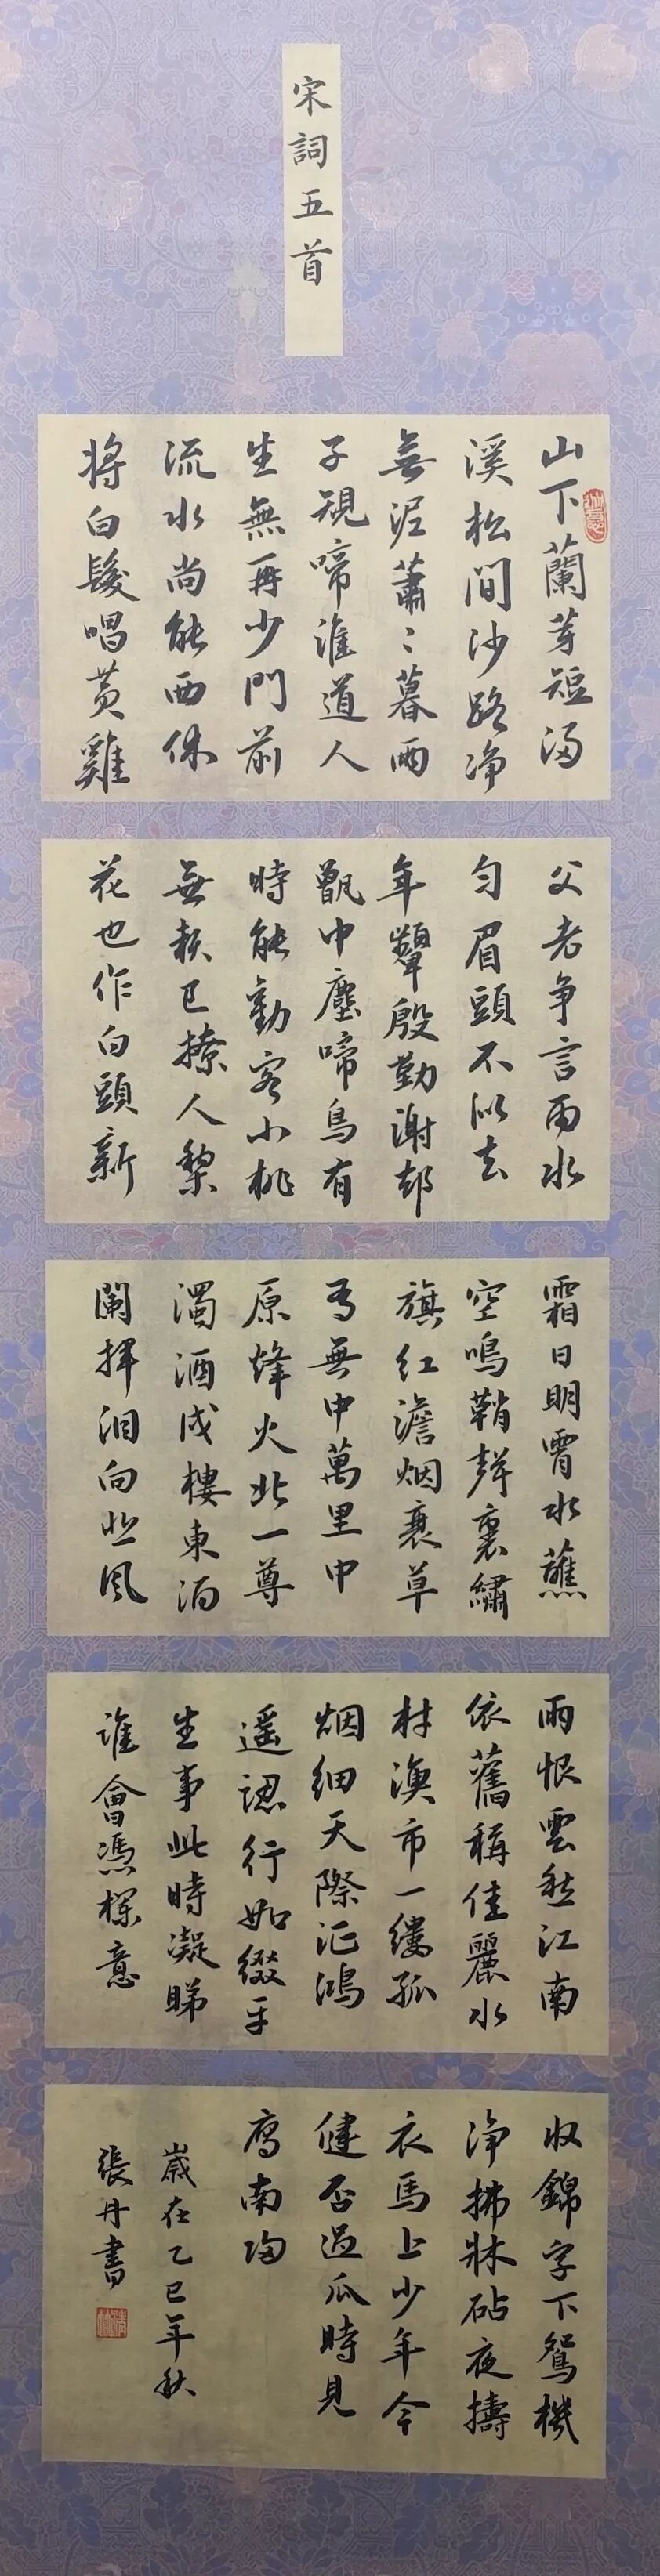 宋詞五首
山下蘭芽短浸
溪松間沙路净
無泥蕭〻暮雨
子規啼誰道人
生無再少門前
流水尚能西休
將白髮唱黄雞
父老争言雨水
匀眉頭不似去
年顰殷勤謝却
甑中塵啼鳥有
時能勸客小桃
無賴已撩人梨
花也作白頭新
霜日明霄水蘸
空鳴鞘聲裏繡
旗紅澹烟衰草
有無中萬里中
原烽火北一尊
濁酒戍樓東酒
闌揮泪向悲風
雨恨雲愁江南
依舊稱佳麗水
村漁市一縷孤
烟細天際征鴻
遥認行如綴平
生事此時凝睇
誰會憑欄意
收錦字下鴛機
净拂牀砧夜擣
衣馬上少年今
健否過瓜時見
雁南歸
歲在乙巳年秋
張丹書